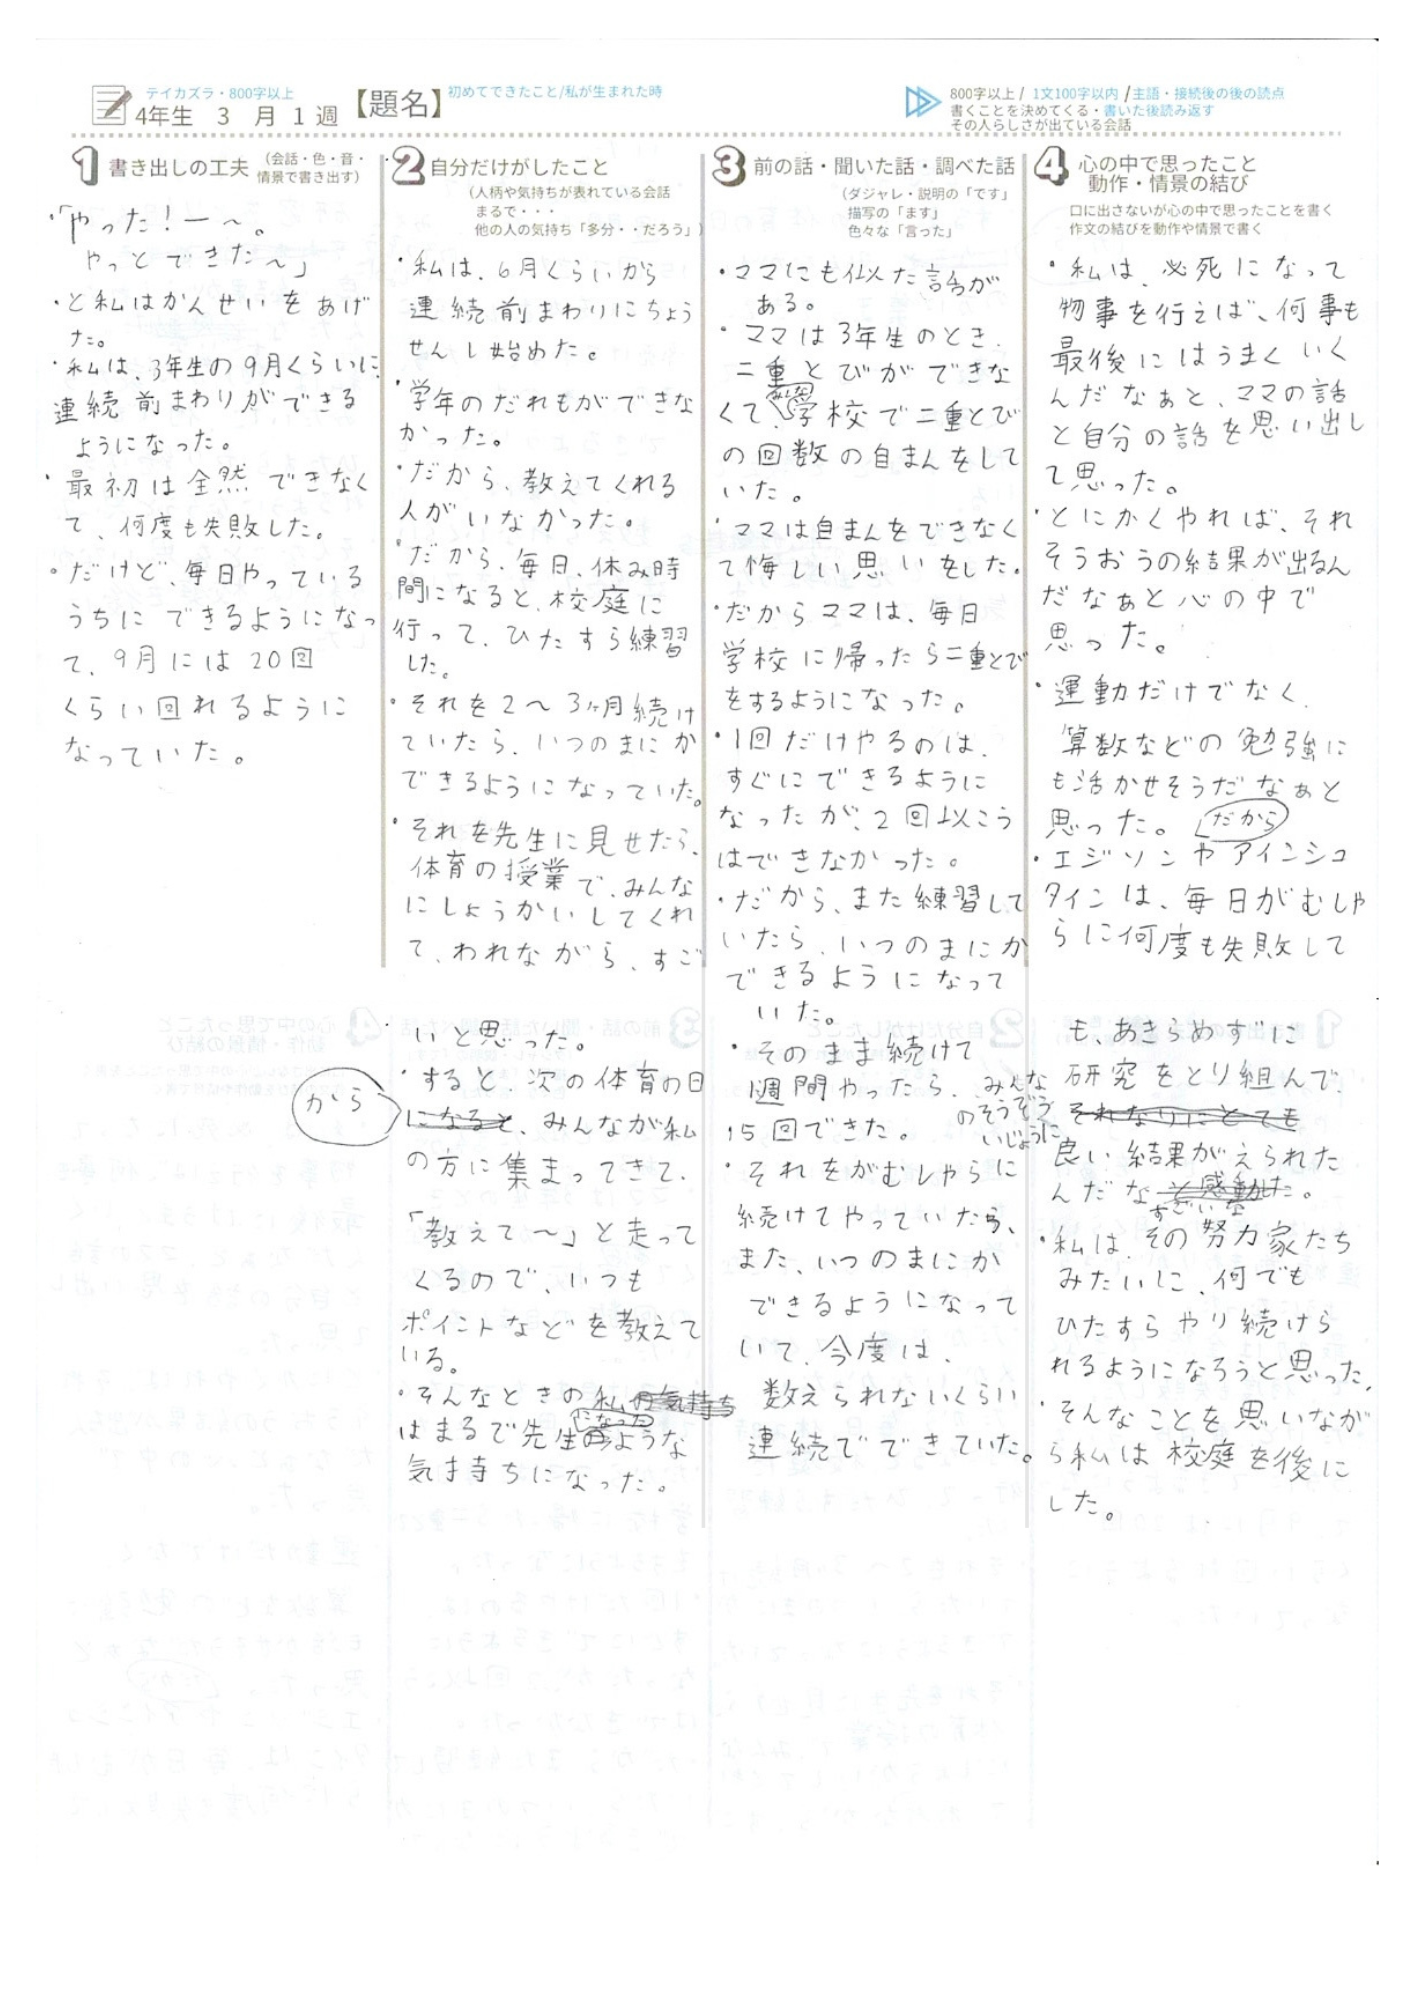 テイカズラ・800字以上
4年生 3 月 1 週
【題名】
初めてできたこと/私が生まれた時
800字以上 / 1文100字以内 / 主語・接続後の後の読点
書くことを決めてくる・書いた後読み返す
その人らしさが出ている会話
1 書き出しの工夫 (会話・色・音・
情景で書き出す)
・「やった!ー〜。
やっとできた〜」
・と私はかんせいをあげ
た。
・私は、3年生の9月くらいに、
連続前まわりができる
ようになった。
・最初は全然できなく
て、何度も失敗した。
・だけど、毎日やっている
うちにできるようになっ
て、9月には20回
くらい回れるように
なっていた。
2 自分だけがしたこと
(人柄や気持ちが表れている会話
まるで・・・
他の人の気持ち「多分・・だろう」)
・私は、6月くらいから
連続前まわりにちょう
せんし始めた。
・学年のだれもができな
かった。
・だから、教えてくれる
人がいなかった。
・だから、毎日、休み時
間になると、校庭に
行って、ひたすら練習
した。
・それを2〜3ヶ月続け
ていたら、いつのまにか
できるようになっていた。
・それを先生に見せたら、
体育の授業で、みんな
にしょうかいしてくれ
て、われながら、すご
いと思った。
・すると、次の体育の日
から
になると、みんなが私
の方に集まってきて、
「教えて〜」と走って
くるので、いつも
ポイントなどを教えて
いる。
・そんなときの私の気持ち
はまるで先生になったような
気持ちになった。
3 前の話・聞いた話・調べた話
(ダジャレ・説明の「です」
描写の「ます」
色々な「言った」)
・ママにも似た話が
ある。
・ママは3年生のとき、
二重とびができな
くて、みんな学校で二重とび
の回数の自まんをして
いた。
・ママは自まんをできなく
て悔しい思いをした。
・だからママは、毎日
学校に帰ったら二重とび
をするようになった。
・1回だけやるのは、
すぐにできるように
なったが、2回以こう
はできなかった。
・だから、また練習して
いたら、いつのまにか
できるようになって
いた。
・そのまま続けて
週間やったら、みんな
のそうぞう
いじょうに
15回できた。
・それをがむしゃらに
続けてやっていたら、
また、いつのまにか
できるようになって
いて、今度は、
数えられないくらい
連続でできていた。
4 心の中で思ったこと
動作・情景の結び
口に出さないが心の中で思ったことを書く
作文の結びを動作や情景で書く
・私は、必死になって
物事を行えば、何事も
最後にはうまくいく
んだなぁと、ママの話
と自分の話を思い出し
て思った。
・とにかくやれば、それ
そうおうの結果が出るん
だなぁと心の中で
思った。
・運動だけでなく、
算数などの勉強に
も活かせそうだなぁと
思った。
だから
・エジソンやアインシュ
タインは、毎日がむしゃ
らに何度も失敗して
も、あきらめずに
研究をとり組んで、
それなりにとても
良い結果がえられた
んだなと感動した。
すごいな
・私は、その努力家たち
みたいに、何でも
ひたすらやり続けら
れるようになろうと思った。
・そんなことを思いなが
ら私は校庭を後に
した。